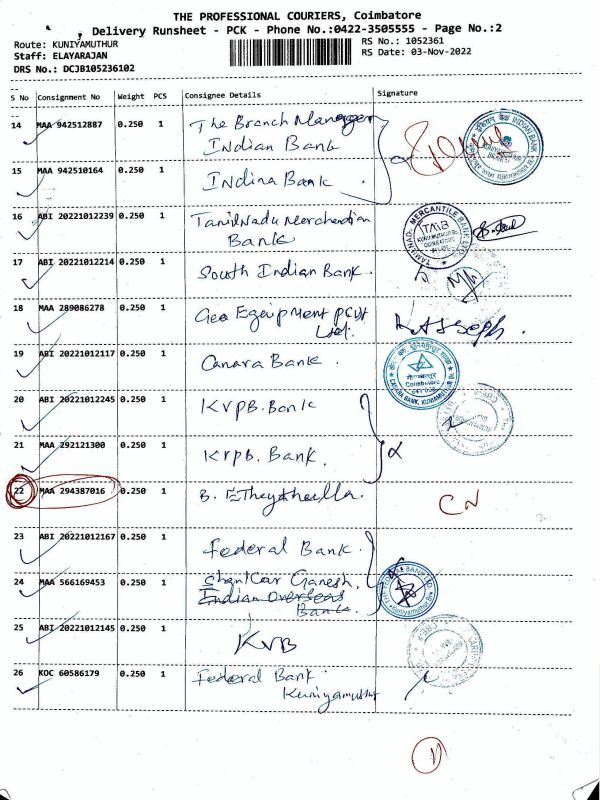 THE PROFESSIONAL COURIERS, Coimbatore
Delivery Runsheet - PCK - Phone No.:0422-3505555 - Page No.:2
Route: KUNIYAMUTHUR
RS No.: 1052361
Staff: ELAYARAJAN
RS Date: 03-Nov-2022
DRS No.: DCJB105236102
S No Consignment No Weight PCS Consignee Details Signature
14 MAA 942512887 0.250 1 The Branch Manager
Indian Bank
15 MAA 942510164 0.250 1 Indina Bank
16 ABI 20221012239 0.250 1 Tamilnadu Merchendian
Bank
17 ABI 20221012214 0.250 1 South Indian Bank.
18 MAA 289086278 0.250 1 Geo Equipment pvt
Ltd.
19 ABI 20221012117 0.250 1 Canara Bank.
20 ABI 20221012245 0.250 1 KVPB. Bank
21 MAA 292121300 0.250 1 Krpb. Bank.
22 MAA 294387016 0.250 1 CN
23 ABI 20221012167 0.250 1 Federal Bank.
24 MAA 566169453 0.250 1 Shankar Ganesh.
Indian Overseas
Bank.
25 ABI 20221012145 0.250 1 KVB
26 KOC 60586179 0.250 1 Federal Bank.
Kuniyamuthur
TMB
CANARA BANK, KUNIAMUTHUR
11